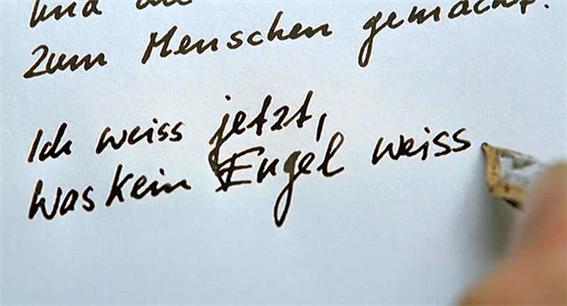 und
zum Menschen gemacht.
Ich weiss jetzt,
was kein Engel weiss